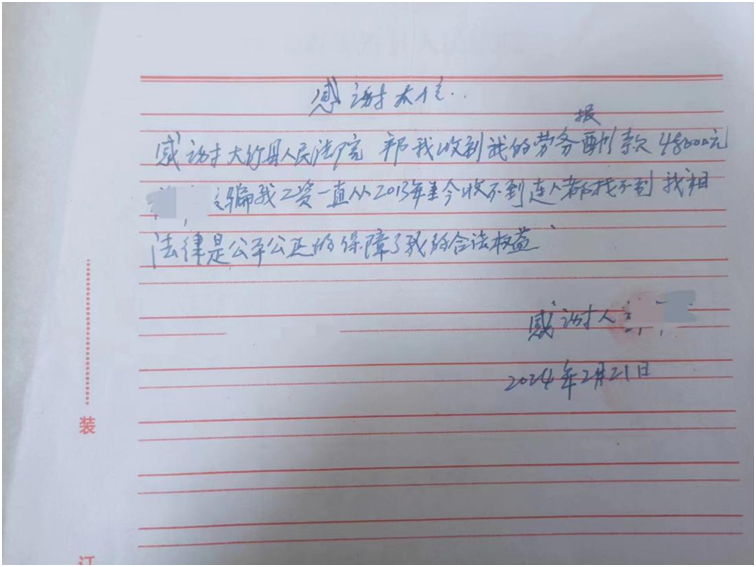 感谢大信
感谢大竹县人民法院 帮我收到我的劳务报酬款48000元
骗我工资一直从2013年至今收不到连人都找不到 我相
法律是公平公正的保障了我的合法权益
感谢人
2024年2月21日
装
订